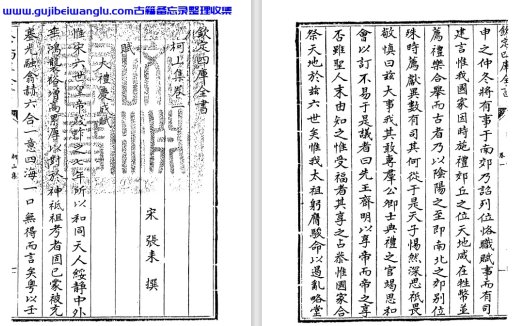 www.gujibeiwanglu.com古籍备忘录整理收集
欽定四庫全書
柯山集卷一
宋 張耒 撰
賦
大禮慶成賦
惟宋六世皇帝踐祚之七年所以和同天人綏靜中外
增高累厚以對於神祗祖考者固已蒙被充
塞光融翕赫六合一意四海一口無得而言矣粤以壬
欽定四庫全書
卷一
申之仲冬將有事于南郊乃詔列位恪職賦事爰有司
建言惟我國家因時施禮郊丘之位天地咸在牲幣並
薦禮樂合舉而古者乃以陰陽之至即南北之郊别位
殊時薦獻異數有司其何從于是天子惕然深思祗畏
敬慎曰兹大事我其敢專羣公卿士典禮之官竭思和
會以訂不易于是議者曰先王齊明以享帝而帝之享
否雖聖人末由知之惟受福者其享之占恭惟國家合
祭天地於兹六世矣惟我太祖躬膺駿命以遏亂略堂